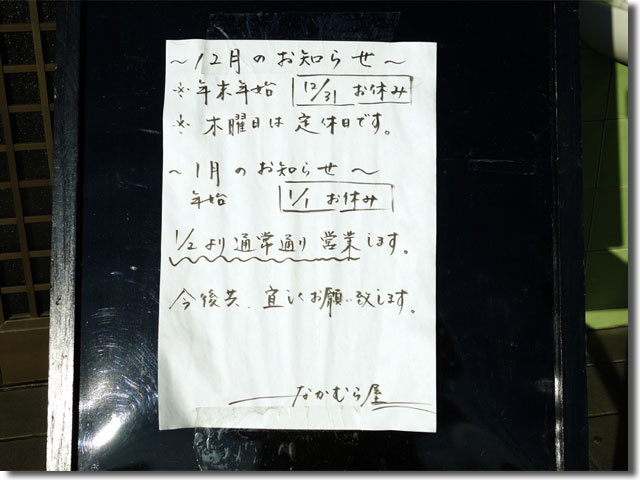 ～12月のお知らせ～
※年末年始 12/31 お休み
※木曜日は定休日です。
～1月のお知らせ～
年始 1/1 お休み
1/2より通常通り営業します。
今後共、宜しくお願い致します。
なかむら屋